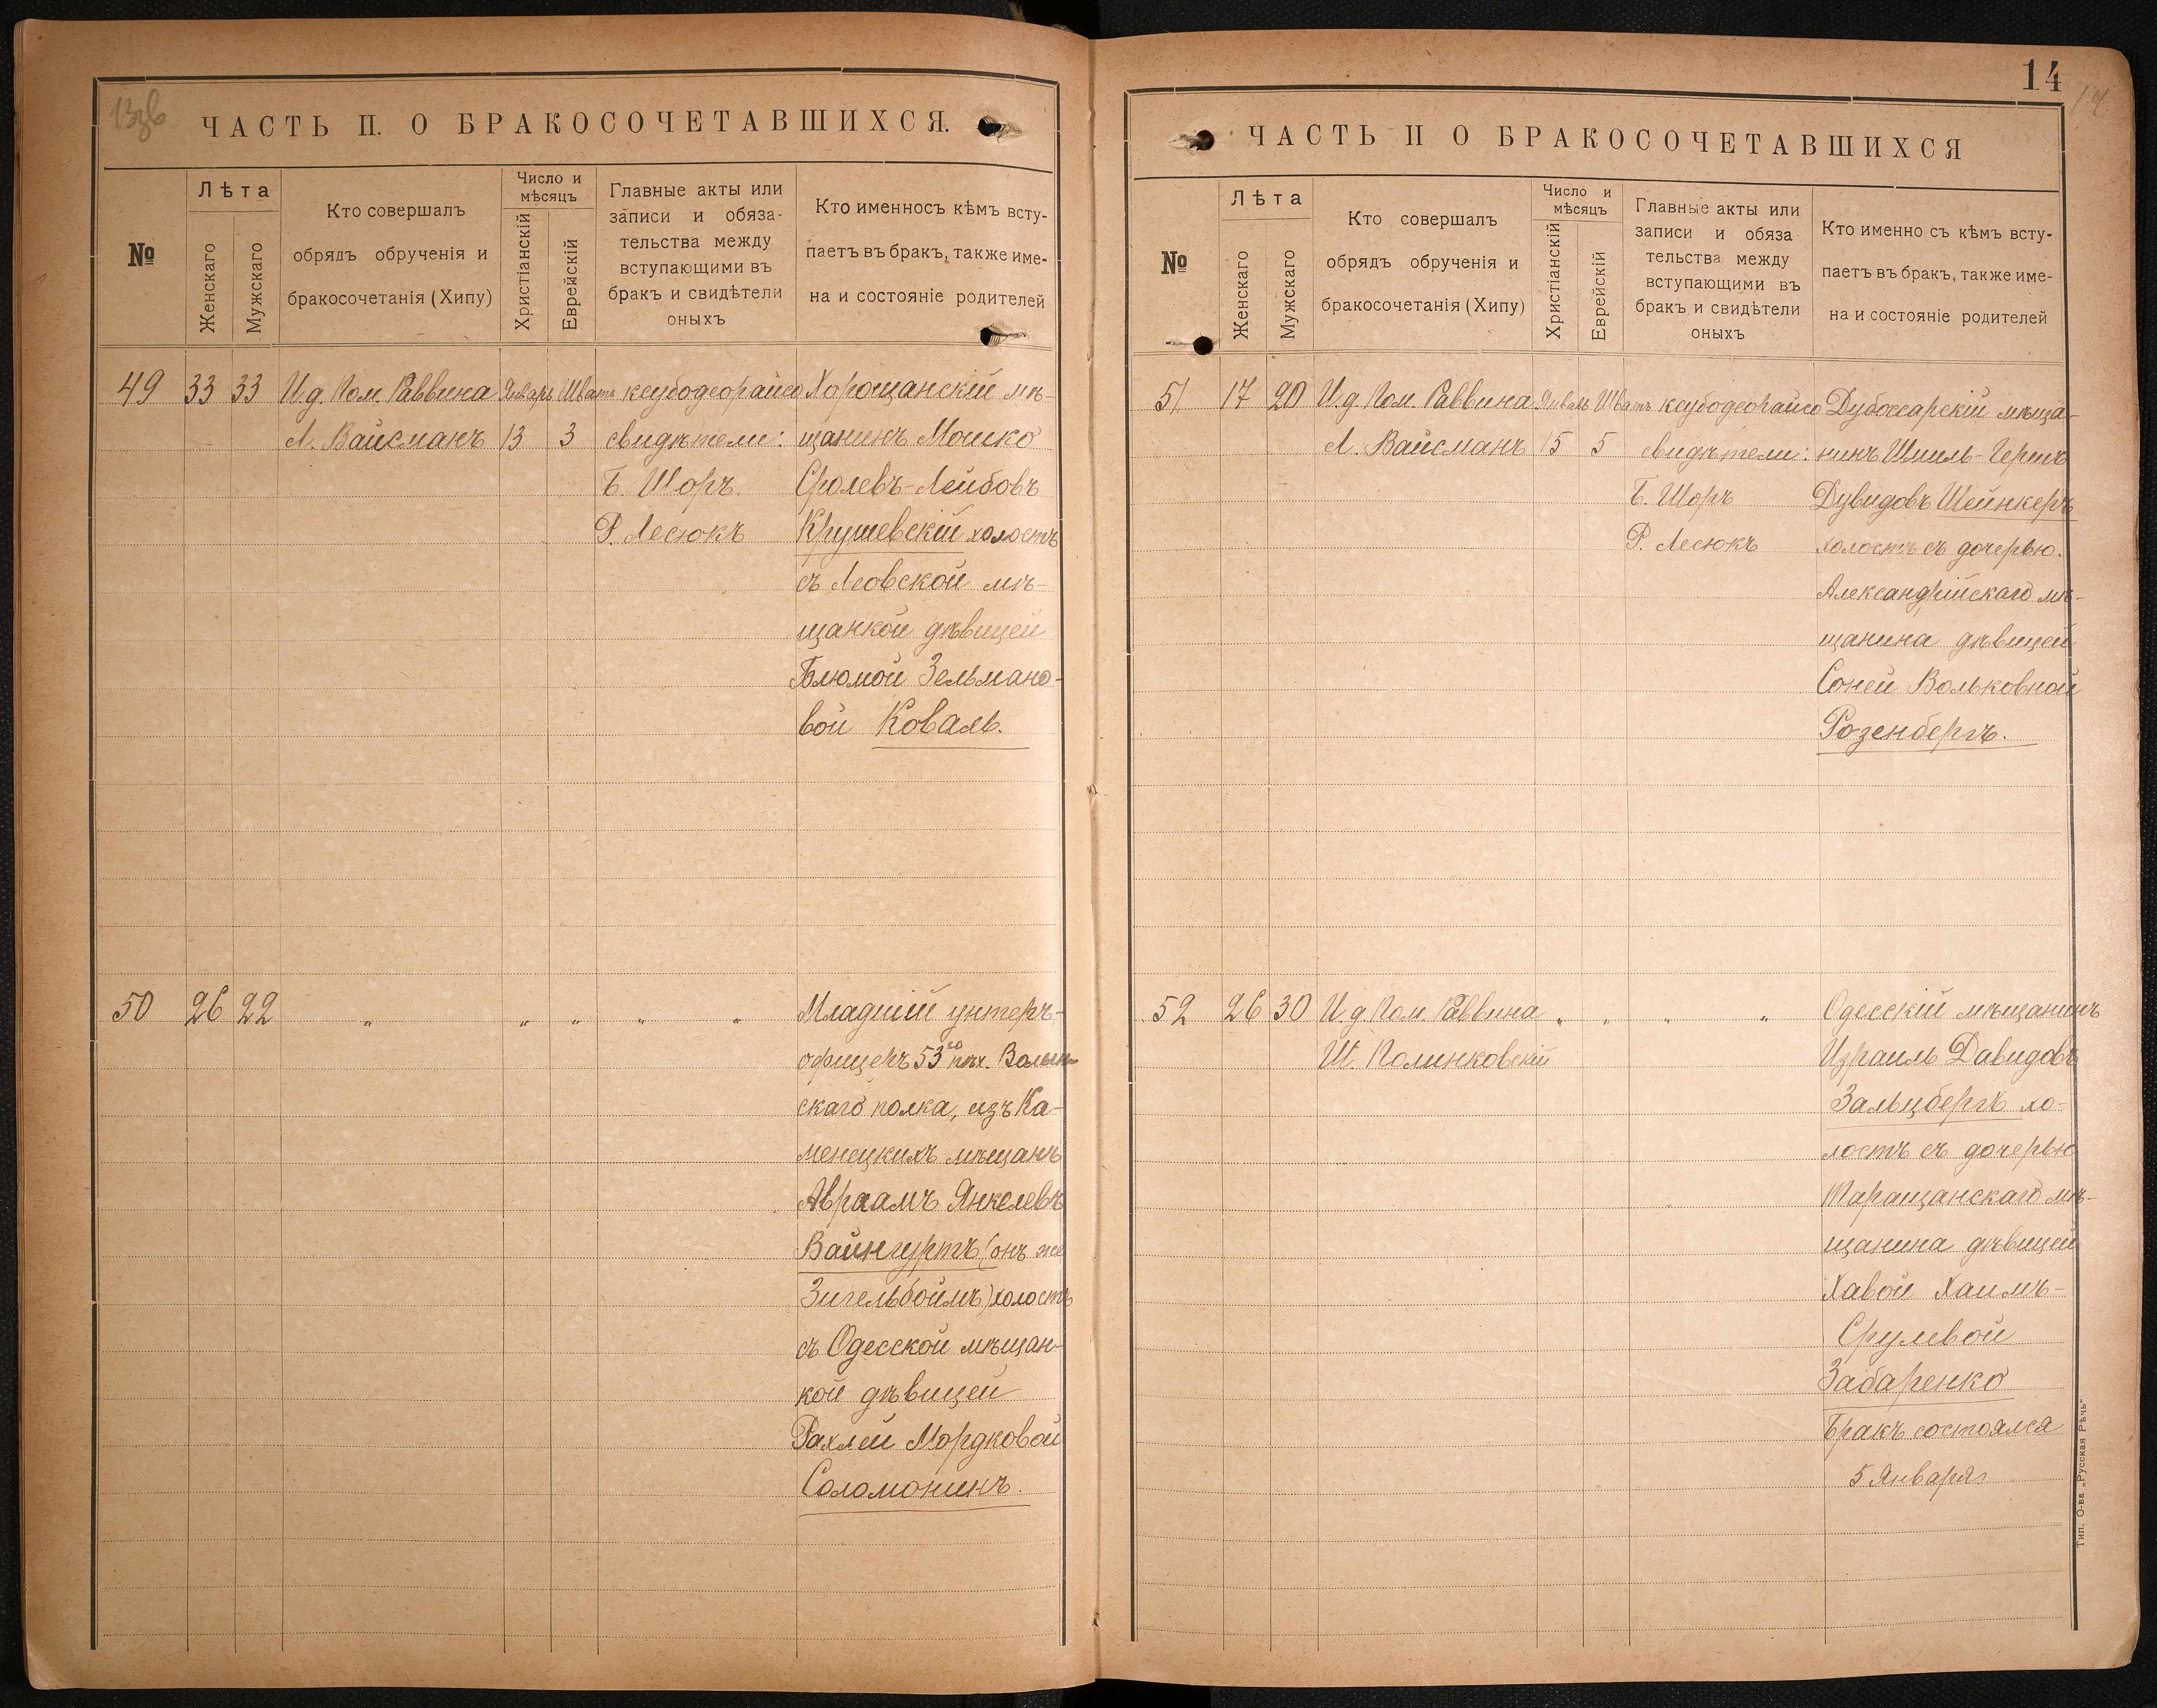 13зв
ЧАСТЬ П. О БРАКОСОЧЕТАВШИХСЯ.
№
Лѣта
Женскаго
Мужскаго
Кто совершалъ
обрядъ обрученія и
бракосочетанія (Хипу)
Число и
мѣсяцъ
Христіанскій
Еврейскій
Главные акты или
записи и обяза-
тельства между
вступающими въ
бракъ и свидѣтели
оныхъ
Кто именносъ кѣмъ всту-
паетъ въ бракъ, также име-
на и состояніе родителей
49 33 33 И.д. Пом. Раввина Январь Шватъ ксубодеорайсо Хорощанскій мѣ-
Л. Вайсманъ 13 3 свидѣтели: щанинъ Мошко
Б. Шоръ. Сролевъ-Лейбовъ
Р. Лесюкъ Крушевскій холостъ
съ Леовской мѣ-
щанкой дѣвицей
Блюмой Зельмано-
вой Коваль.
50 26 22 „ „ „ „ „ Младшій унтеръ-
офицеръ 53го пѣх. Волын-
скаго полка, изъ Ка-
менецкихъ мѣщанъ
Авраамъ Янкелевъ
Вайнгуртъ (онъ же
Зигельбоймъ) холостъ
съ Одесской мѣщан-
кой дѣвицей
Рахлей Мордковой
Соломонинъ.
14
14
ЧАСТЬ П О БРАКОСОЧЕТАВШИХСЯ
№
Лѣта
Женскаго
Мужскаго
Кто совершалъ
обрядъ обрученія и
бракосочетанія (Хипу)
Число и
мѣсяцъ
Христіанскій
Еврейскій
Главные акты или
записи и обяза
тельства между
вступающими въ
бракъ и свидѣтели
оныхъ
Кто именно съ кѣмъ всту-
паетъ въ бракъ, также име-
на и состояніе родителей
51. 17 20 И.д Пом. Раввина Январь Шватъ ксубодеорайсо Дубоссарскій мѣща-
Л. Вайсманъ 15 5 свидѣтели: нинъ Шмиль-Гершъ
Б. Шоръ Дувидовъ Шейнкеръ
Р. Лесюкъ холостъ съ дочерью
Александрійскаго мѣ-
щанина дѣвицей
Соней Вольковной
Розенбергъ.
52 26 30 И.д Пом. Раввина „ „ „ „ Одесскій мѣщанинъ
Ш. Полинковскій Израиль Давидовъ
Зальцбергъ хо-
лостъ съ дочерью
Таращанскаго мѣ-
щанина дѣвицей
Хавой Хаимъ-
Срулевой
Забаренко
Бракъ состоялся
5 Января
Тип. О-ва „Русская Рѣчь"